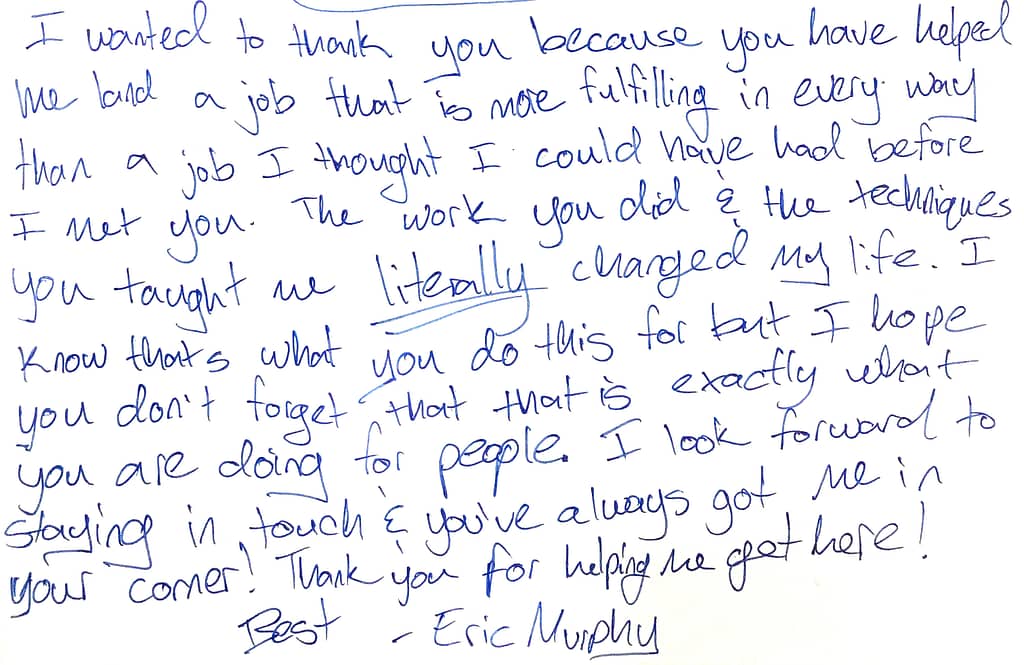 I wanted to thank you because you have helped
me land a job that is more fulfilling in every way
than a job I thought I could have had before
I met you. The work you did & the techniques
you taught me literally changed my life. I
know that's what you do this for but I hope
you don't forget that that is exactly what
you are doing for people. I look forward to
staying in touch & you've always got me in
your corner! Thank you for helping me get here!
Best - Eric Murphy